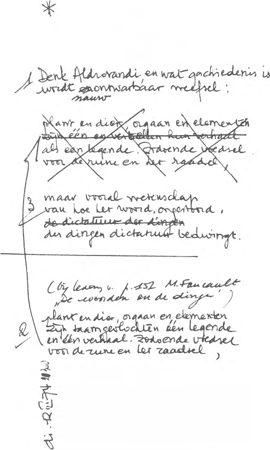 *
1 Denk Aldrovandi en wat geschiedenis is
wordt ontwarbaar weefsel:
nauw
plant en dier, orgaan en elementen
zijn één en vertellen hun verhaal
als een legende. Zodoende voedsel
voor de ruïne en het raadsel,
3 maar vooral wetenschap
van hoe het woord, ongestoord,
de dictatuur der dingen
der dingen dictatuur bedwingt.
(Bij lezen v. p. M. Foucault
"De woorden en de dingen")
2 plant en dier, orgaan en elementen
zijn saamgevlochten één legende
en één verhaal. Zodoende voedsel
voor de ruïne en het raadsel,